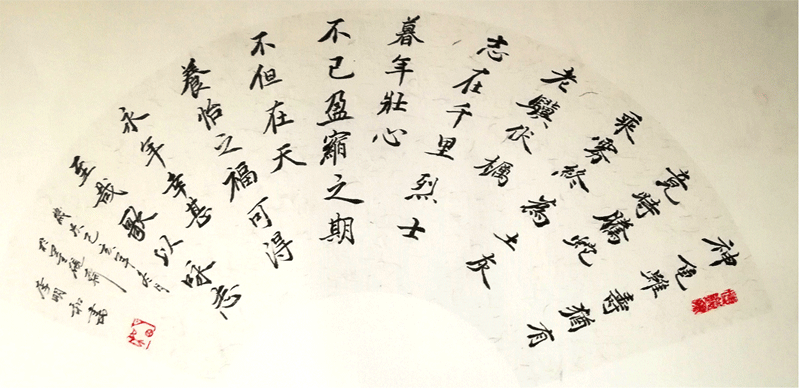 神龜雖壽猶有
竟時騰蛇
乘霧終為土灰
老驥伏櫪
志在千里烈士
暮年壯心
不已盈縮之期
不但在天
養怡之福可得
永年幸甚
至哉歌以咏志
歲次己亥年
於墨
李明書